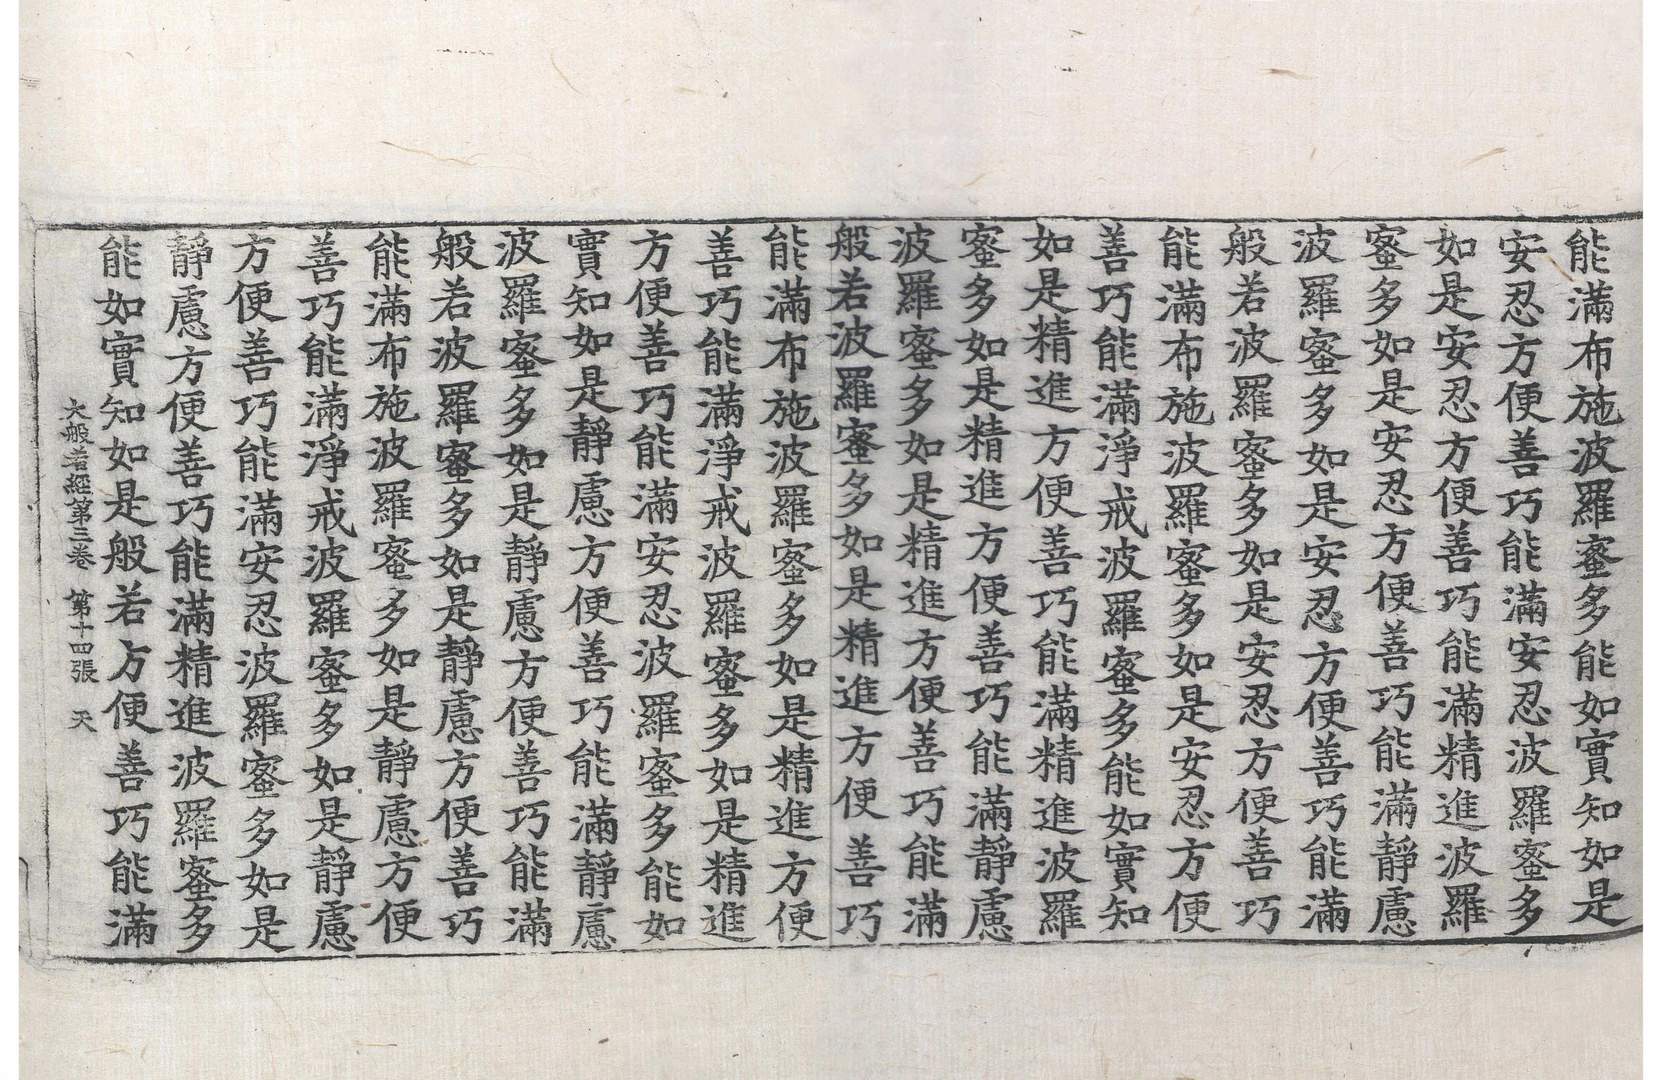 能滿布施波羅蜜多能如實知如是
安忍方便善巧能滿安忍波羅蜜多
如是安忍方便善巧能滿精進波羅
蜜多如是安忍方便善巧能滿靜慮
波羅蜜多如是安忍方便善巧能滿
般若波羅蜜多如是安忍方便善巧
能滿布施波羅蜜多如是安忍方便
善巧能滿淨戒波羅蜜多能如實知
如是精進方便善巧能滿精進波羅
蜜多如是精進方便善巧能滿靜慮
波羅蜜多如是精進方便善巧能滿
般若波羅蜜多如是精進方便善巧
能滿布施波羅蜜多如是精進方便
善巧能滿淨戒波羅蜜多如是精進
方便善巧能滿安忍波羅蜜多能如
實知如是靜慮方便善巧能滿靜慮
波羅蜜多如是靜慮方便善巧能滿
般若波羅蜜多如是靜慮方便善巧
能滿布施波羅蜜多如是靜慮方便
善巧能滿淨戒波羅蜜多如是靜慮
方便善巧能滿安忍波羅蜜多如是
靜慮方便善巧能滿精進波羅蜜多
能如實知如是般若方便善巧能滿
大般若經第三卷 第十四張 天